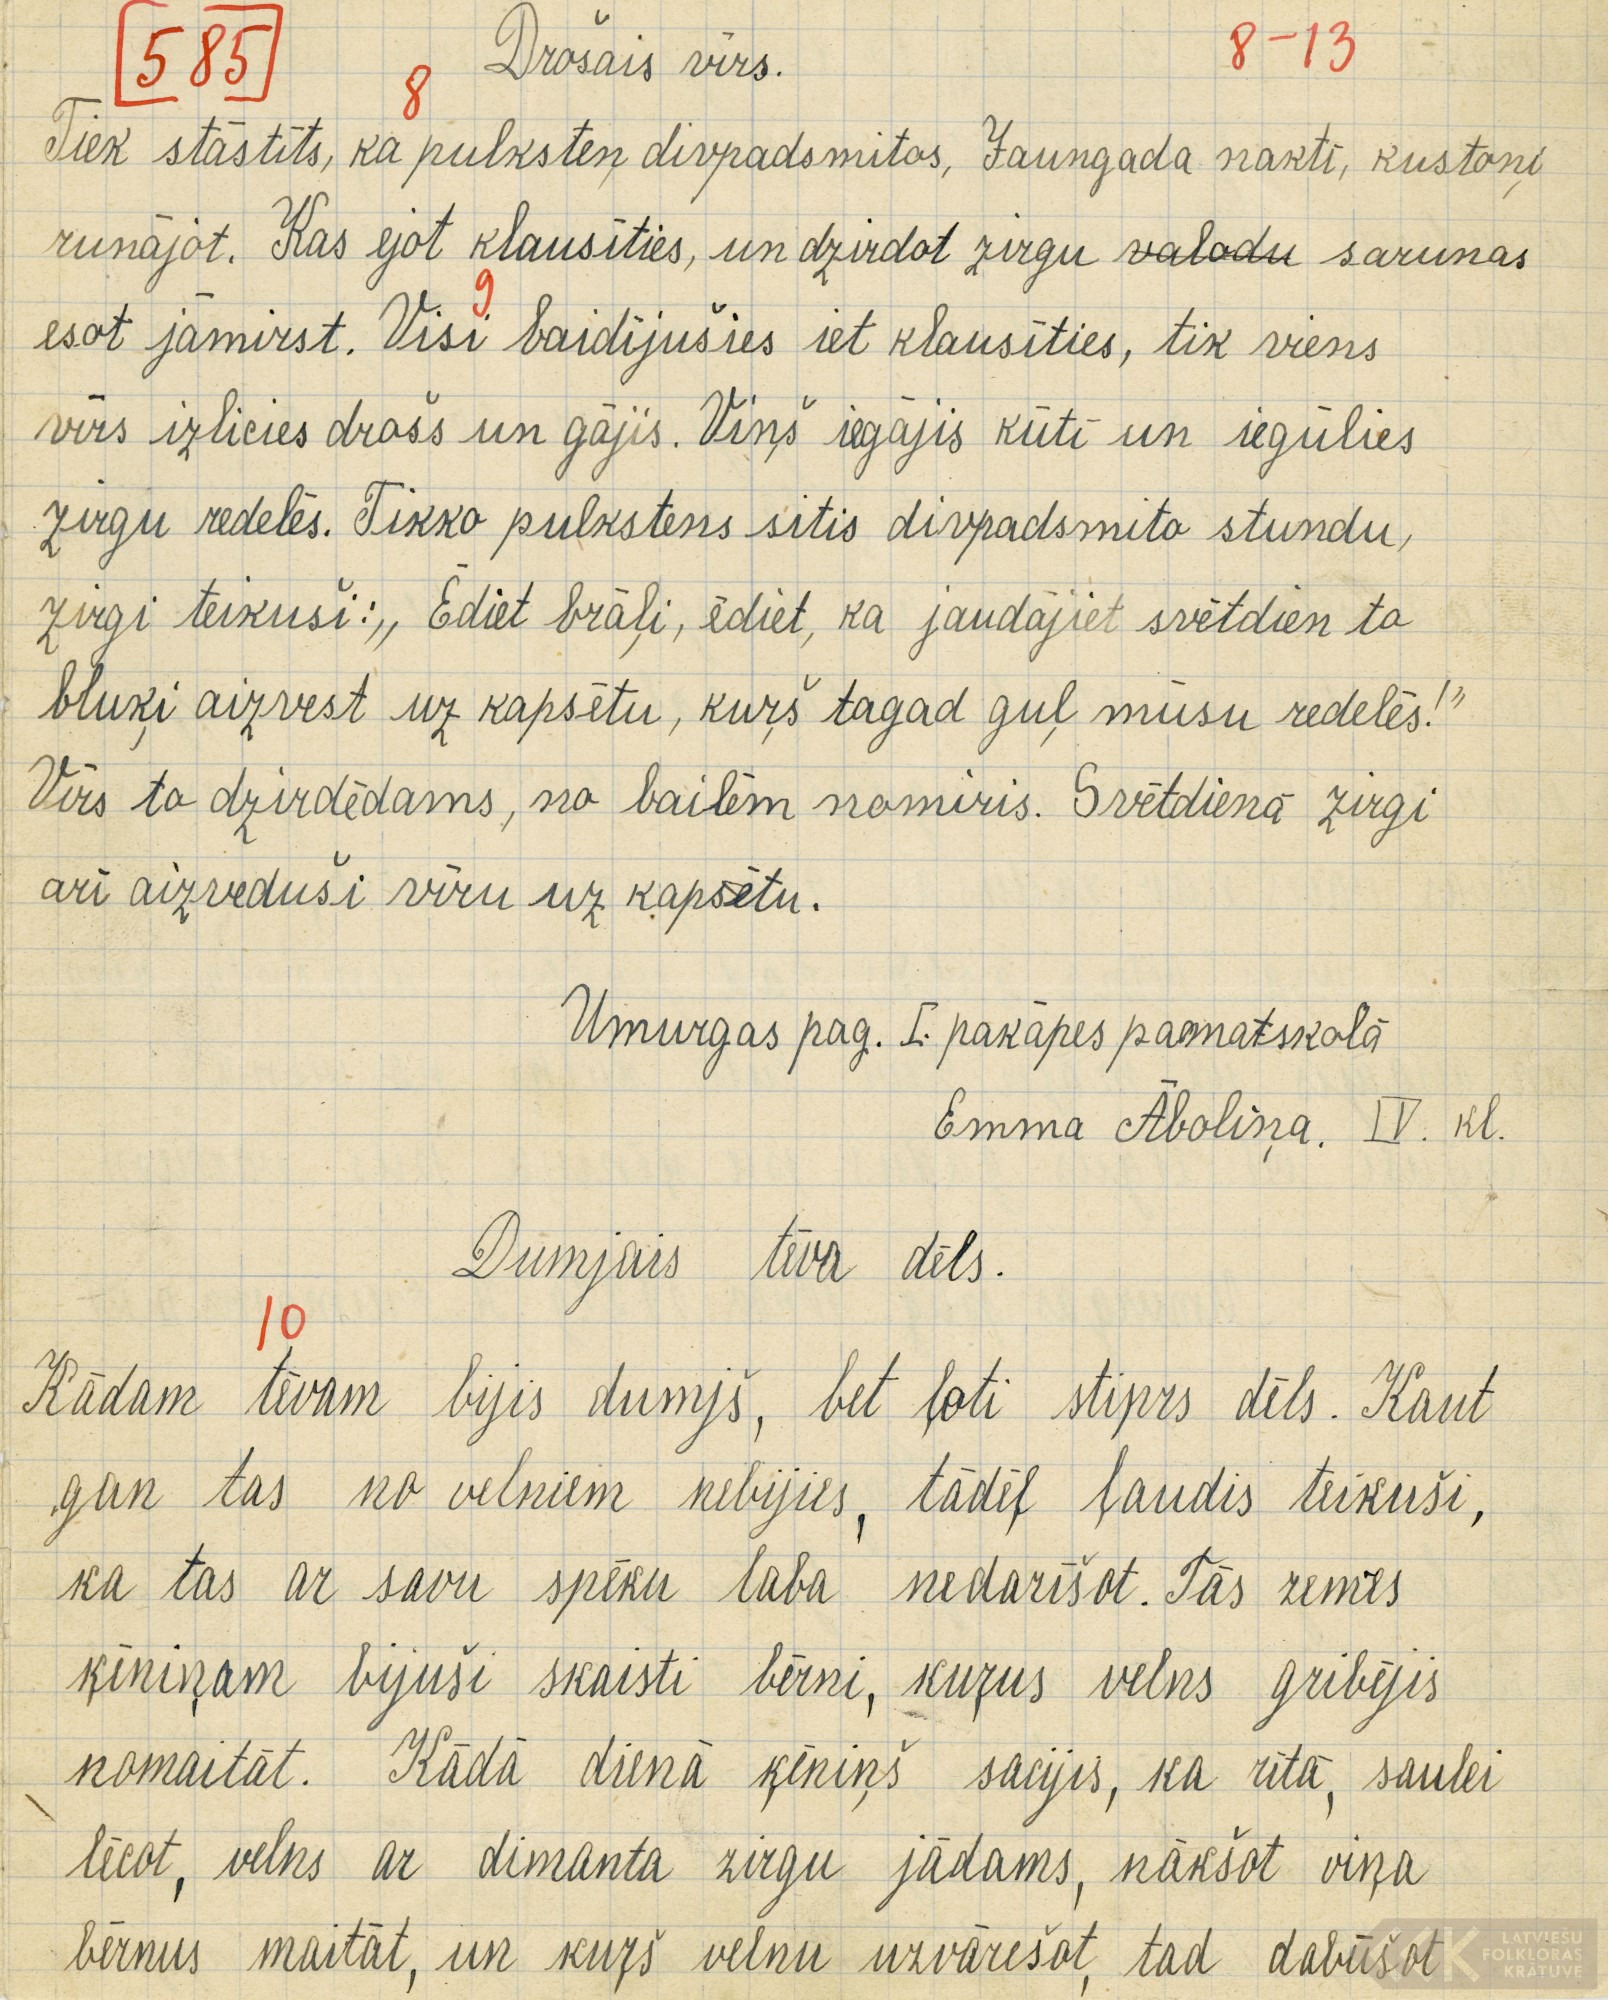 585 Drošais vīrs. 8-13
8
Tiek stāstīts, ka pulksteņ divpadsmitos, Jaungada naktī, kustoņi
runājot. Kas ejot klausīties, un dzirdot zirgu valodu sarunas
9
esot jāmirst. Visi baidījušies iet klausīties, tik viens
vīrs izlicies drošs un gājis. Viņš iegājis kūtī un iegūlies
zirgu redelēs. Tikko pulkstens sitis divpadsmito stundu,
zirgi teikuši: „Ēdiet brāļi, ēdiet, ka jaudājiet svētdien to
bluķi aizvest uz kapsētu, kuŗš tagad guļ mūsu redelēs!”
Vīrs to dzirdēdams, no bailēm nomiris. Svētdienā zirgi
arī aizveduši vīru uz kapsētu.
Umurgas pag. I. pakāpes pamatskolā
Emma Āboliņa. IV. kl.
Dumjais tēva dēls.
10
Kādam tēvam bijis dumjš, bet ļoti stiprs dēls. Kaut
gan tas no velniem nebijies, tādēļ ļaudis teikuši,
ka tas ar savu spēku laba nedarīšot. Tās zemes
ķēniņam bijuši skaisti bērni, kuŗus velns gribējis
nomaitāt. Kādā dienā ķēniņš sacījis, ka rītā, saulei
lēcot, velns ar dimanta zirgu jādams, nākšot viņa
bērnus maitāt, un kuŗš velnu uzvārešot, tad dabūšot
LATVIEŠU
FOLKLORAS
KRĀTUVE